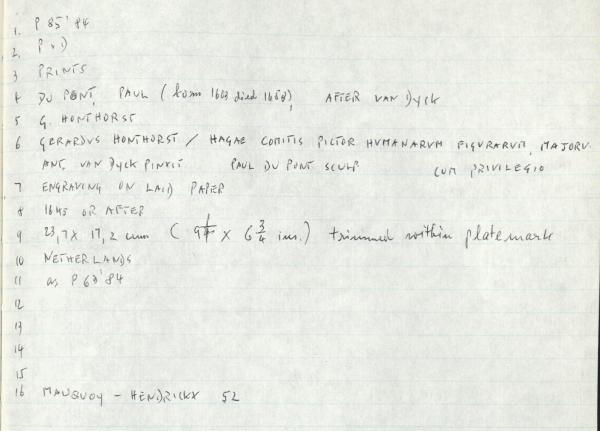 1. P 85'84
2. P v)
3 PRINTS
4 DU PONT, PAUL (born 1603 died 1658), AFTER VAN DYCK
5 G. HONTHORST
6 GERARDVS HONTHORST / HAGAE COMITIS PICTOR HVMANARVM FIGVRARVM, MAJORV.
ANT. VAN DYCK PINXIT PAUL DU PONT SCULP CUM PRIVILEGIO
7 ENGRAVING ON LAID PAPER
8 1645 OR AFTER
9 23,7 x 17,2 cm ( 9 1/4 x 6 3/4 ins.) trimmed within platemark
10 NETHERLANDS
11 as P 63'84
12
13
14
15
16 MAUQUOY - HENDRICKX 52